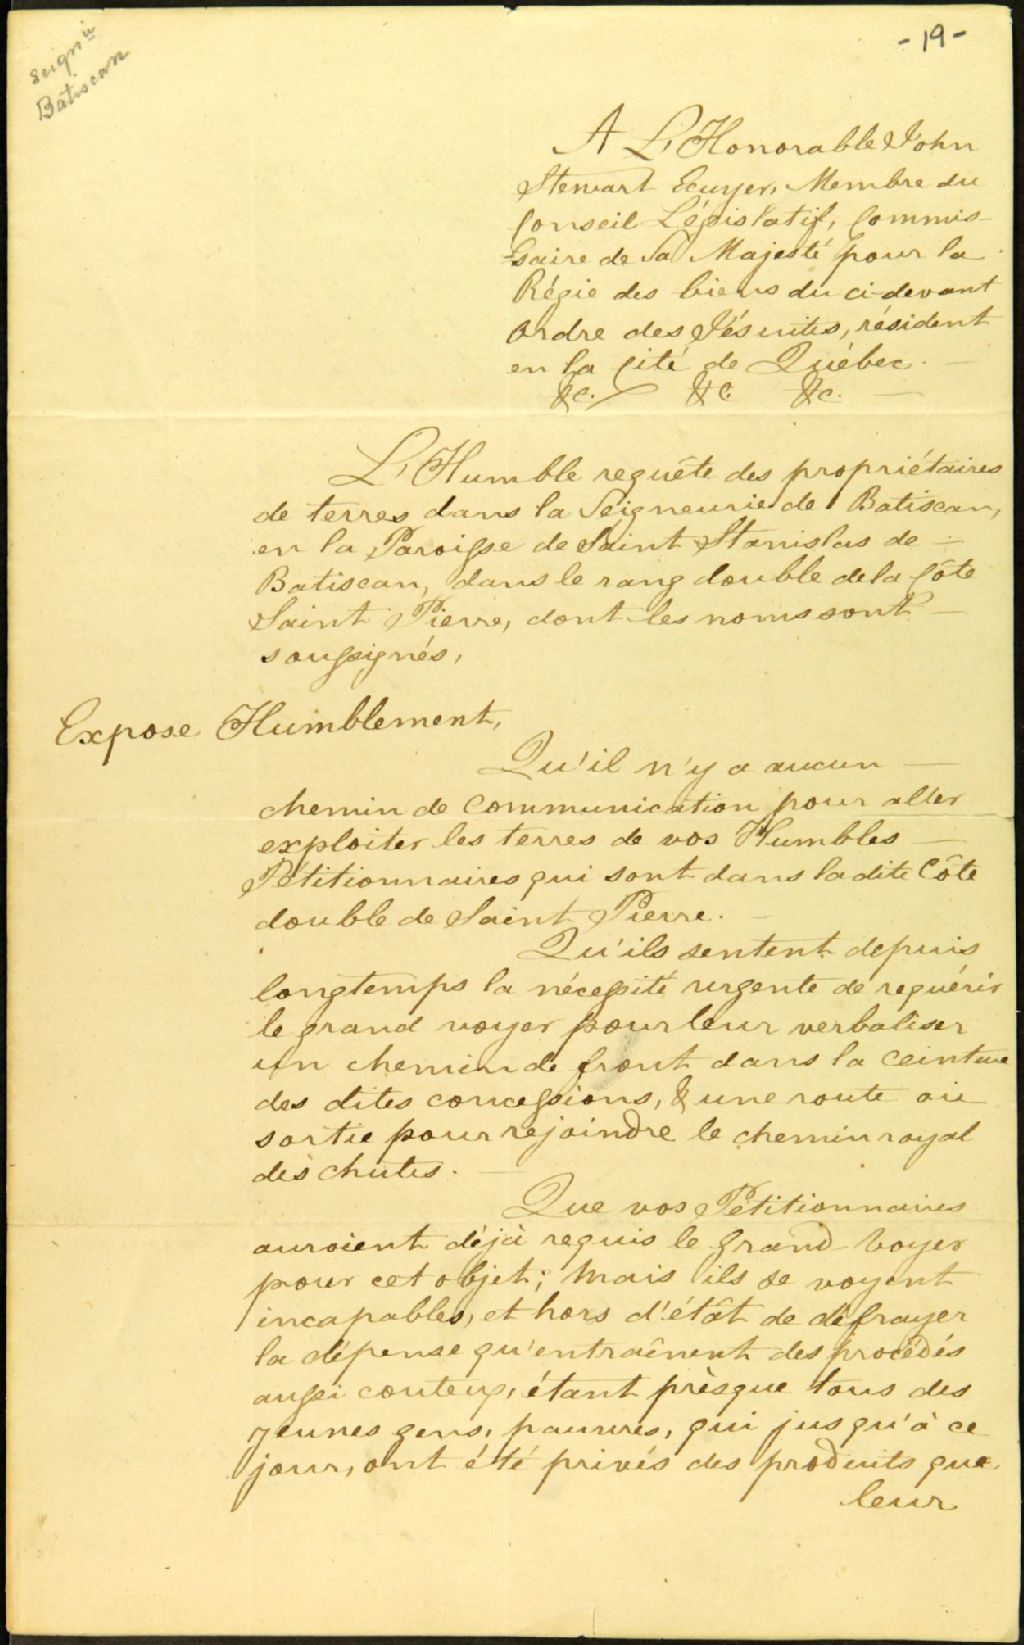 Seignie
Batiscan
- 19 -
A L'Honorable John
Stewart Ecuyer, Membre du
Conseil Législatif, Commis-
-saire de Sa Majesté pour la
Régie des biens du ci-devant
Ordre des Jésuites, résident
en la Cité de Québec. —
&c. &c &c. —
L'Humble requête des propriétaires
de terres dans la Seigneurie de Batiscan,
en la Paroisse de Saint Stanislas de —
Batiscan, dans le rang double de la Côte
Saint Pierre, dont les noms sont —
soussignés,
Expose Humblement,
Qu'il n'y a aucun —
chemin de communication pour aller
exploiter les terres de vos Humbles —
Pétitionnaires qui sont dans la dite Côte
double de Saint Pierre. —
Qu'ils sentent depuis
longtemps la nécessité urgente de requérir
le grand voyer pour leur verbaliser
un chemin de front dans la ceinture
des dites concessions, & une route ou
sortie pour rejoindre le chemin royal
des chutes. —
Que vos Pétitionnaires
auroient déjà requis le Grand Voyer
pour cet objet; mais ils se voyent
incapables, et hors d'étât de défrayer
la dépense qu'entraînent des procédés
aussi couteux, étant prèsque tous des
jeunes gens, pauvres, qui jusqu'à ce
jour, ont été privés des produits que
leur